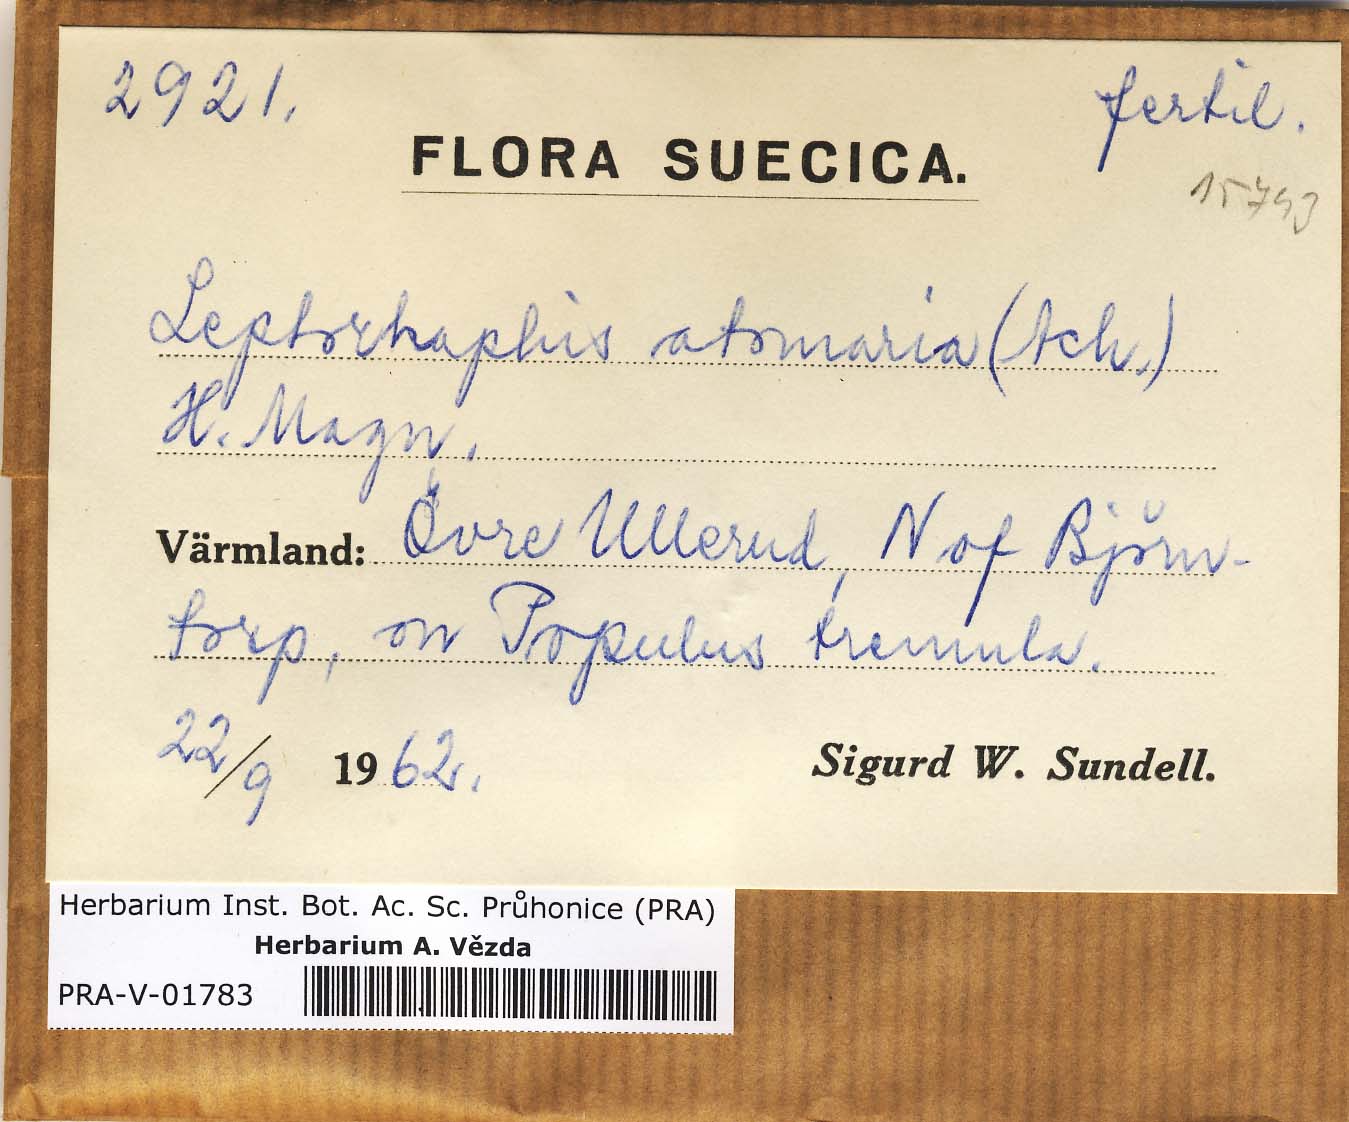 2921.
fertil.
FLORA SUECICA.
15793
Leptorhaphis atomaria (Ach.)
H. Magn.
Värmland: Övre Ullerud, N of Björn-
torp, on Populus tremula.
22/9 1962.
Sigurd W. Sundell.
Herbarium Inst. Bot. Ac. Sc. Průhonice (PRA)
Herbarium A. Vězda
PRA-V-01783